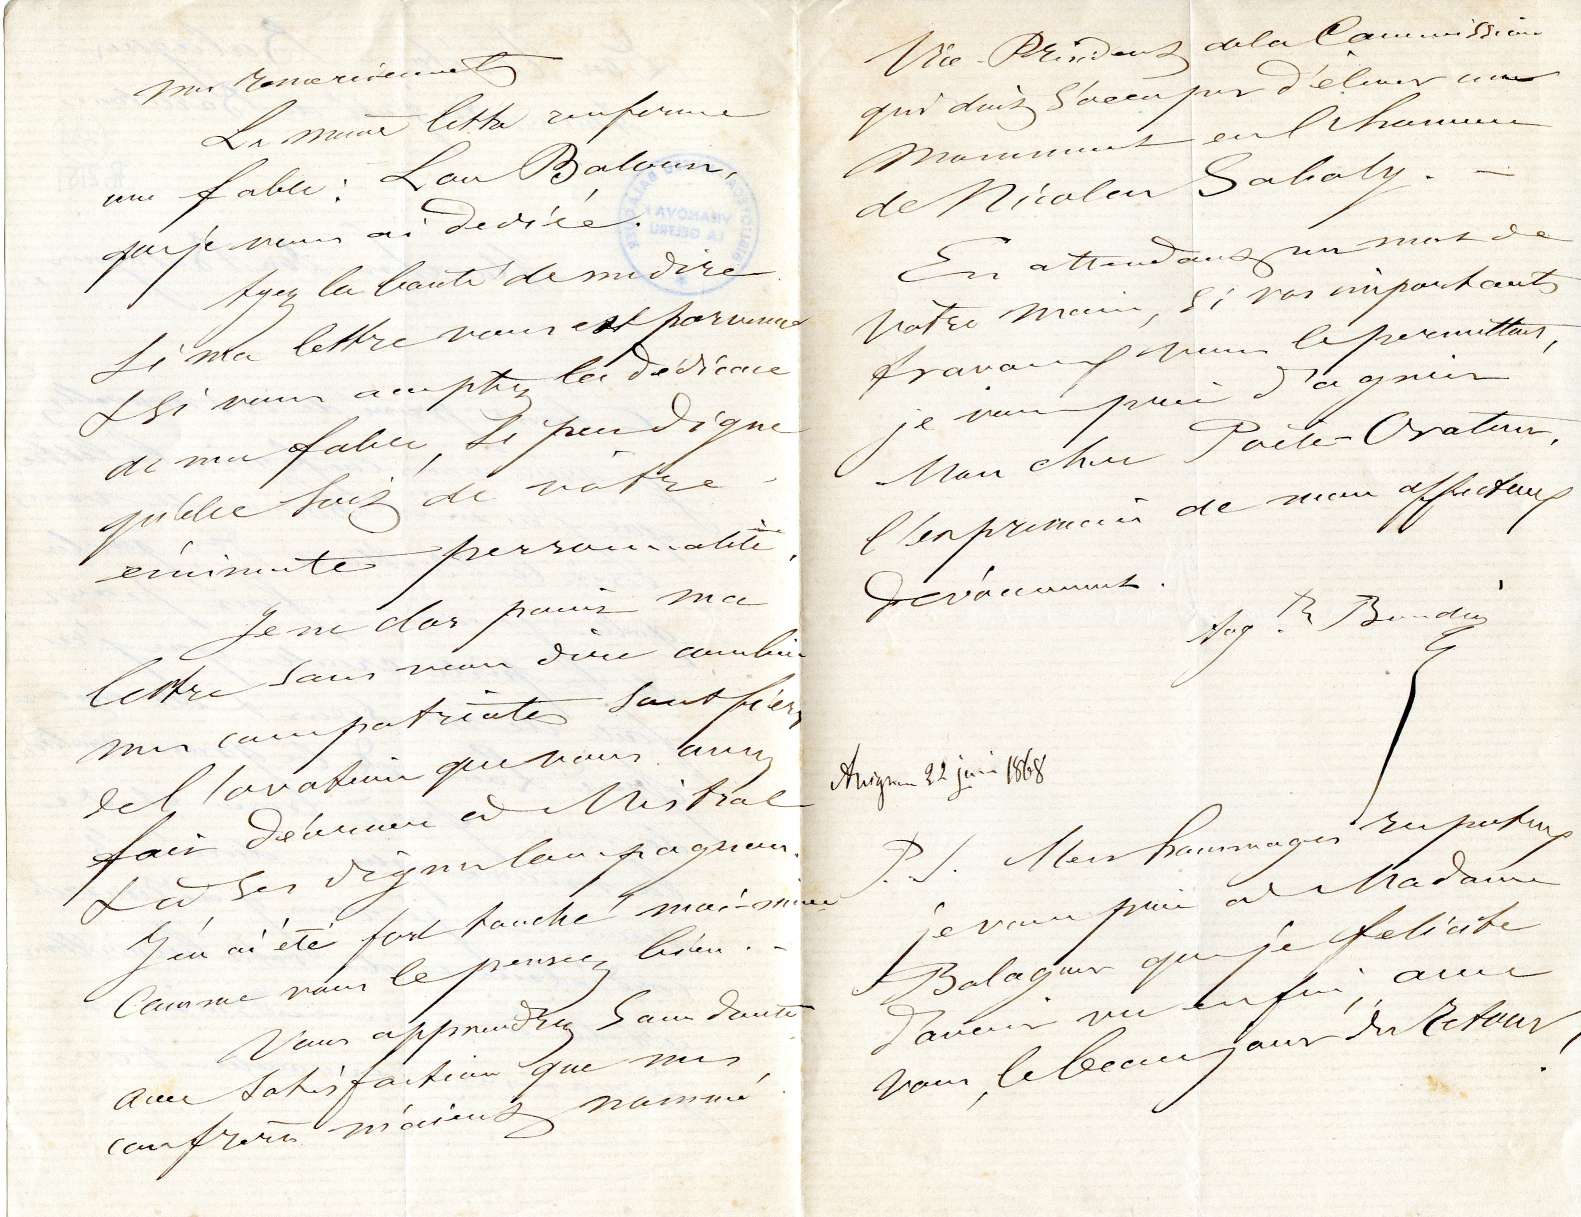 mes remerciements
La même lettre renferme
une fable: Lou Baloun,
que je vous ai dédiée.
Ayez la bonté de me dire
si ma lettre vous est parvenue
& si vous acceptez la dédicace
de ma fable, si peu digne
qu'elle soit de vôtre
éminente personnalité.
Je ne clos point ma
lettre sans vous dire combien
mes compatriotes sont fiers
de l'ovation que vous avez
fait décerner à Mistral
& à ses dignes compagnons.
J'en ai été fort touché moi-même
comme vous le pensez bien. -
Vous apprendrez sans doute
avec satisfaction que mes
confrères m'aient nommé
Vice-Président de la Commission
qui doit s'occuper d'élever un
monument en l'honneur
de Nicolas Saboly. -
En attendant un mot de
vôtre main, si vos importants
travaux vous le permettent,
je vous prie d'agréer
Mon cher Poète-Orateur,
l'expression de mon affectueux
dévouement.
Aug.in Boudin
Avignon 22 juin 1868
P.S. Mes hommages respectueux
je vous prie à Madame
Balaguer que je félicite
d'avoir vu enfin, avec
vous, le beau jour du Retour,
VILANOVA I
LA GELTRÚ